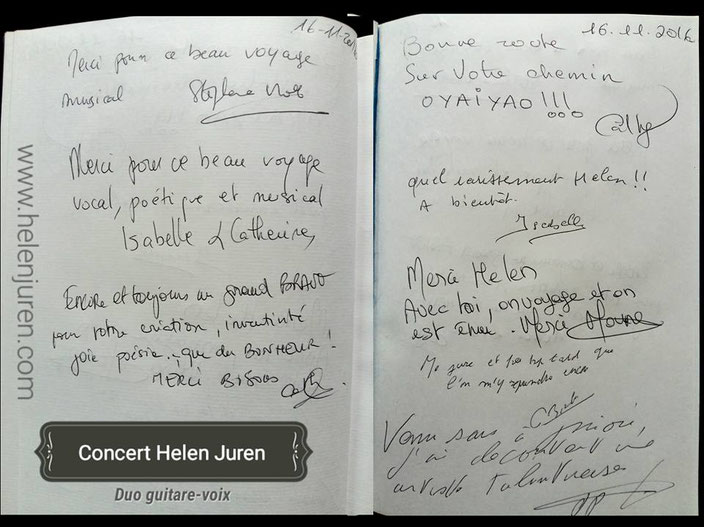 16-11-2016
Merci pour ce beau voyage
musical Stéphane
Merci pour ce beau voyage
vocal, poétique et musical
Isabelle & Catherine
Encore et toujours un grand BRAVO
pour votre création, inventivité
joie poésie... que du BONHEUR!
MERCI BISOUS
www.helenjuren.com
Concert Helen Juren
Duo guitare-voix
16.11.2016
Bonne route
Sur Votre chemin
OYAiYAO!!!
Cathy
quel ravissement Helen!!
A bientôt.
Isabelle
Merci Helen
Avec toi, on voyage et on
est ému. Merci
tard que
l'on m'y
Venu sans à priori,
j'ai découvert une
artiste talentueuse